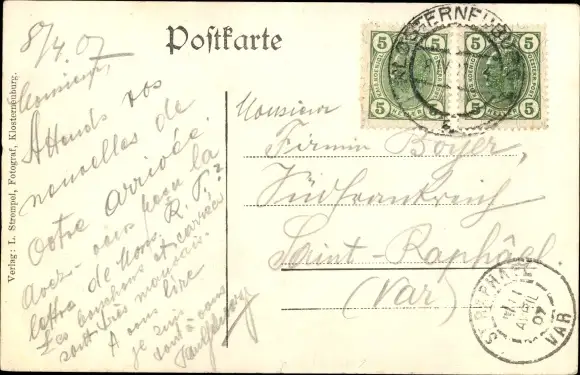 8/4.07
Postkarte
Monsieur,
Attends vos
nouvelles de
votre arrivée.
avez-vous reçu la
lettre de Mons. R. P.?
Les et carrées
sont très mauvais.
A vous lire
je suis
tout à vous
Verlag: L. Strempel, Fotograf, Klosterneuburg.
5 5
5 5
5 5
5 5
KLOSTERNEUBURG
Monsieur
Firmin Boyer,
Südfrankreich
Saint-Raphael
(Var)
ST RAPHAEL
11
AVRIL
07
VAR